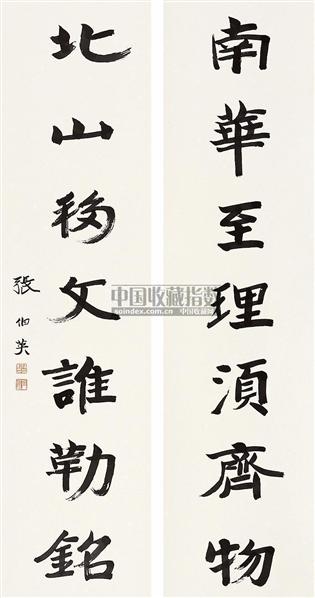 南華至理須齊物
北山移文誰勒銘
張伯英
中国收藏指数
soindex.com.cn